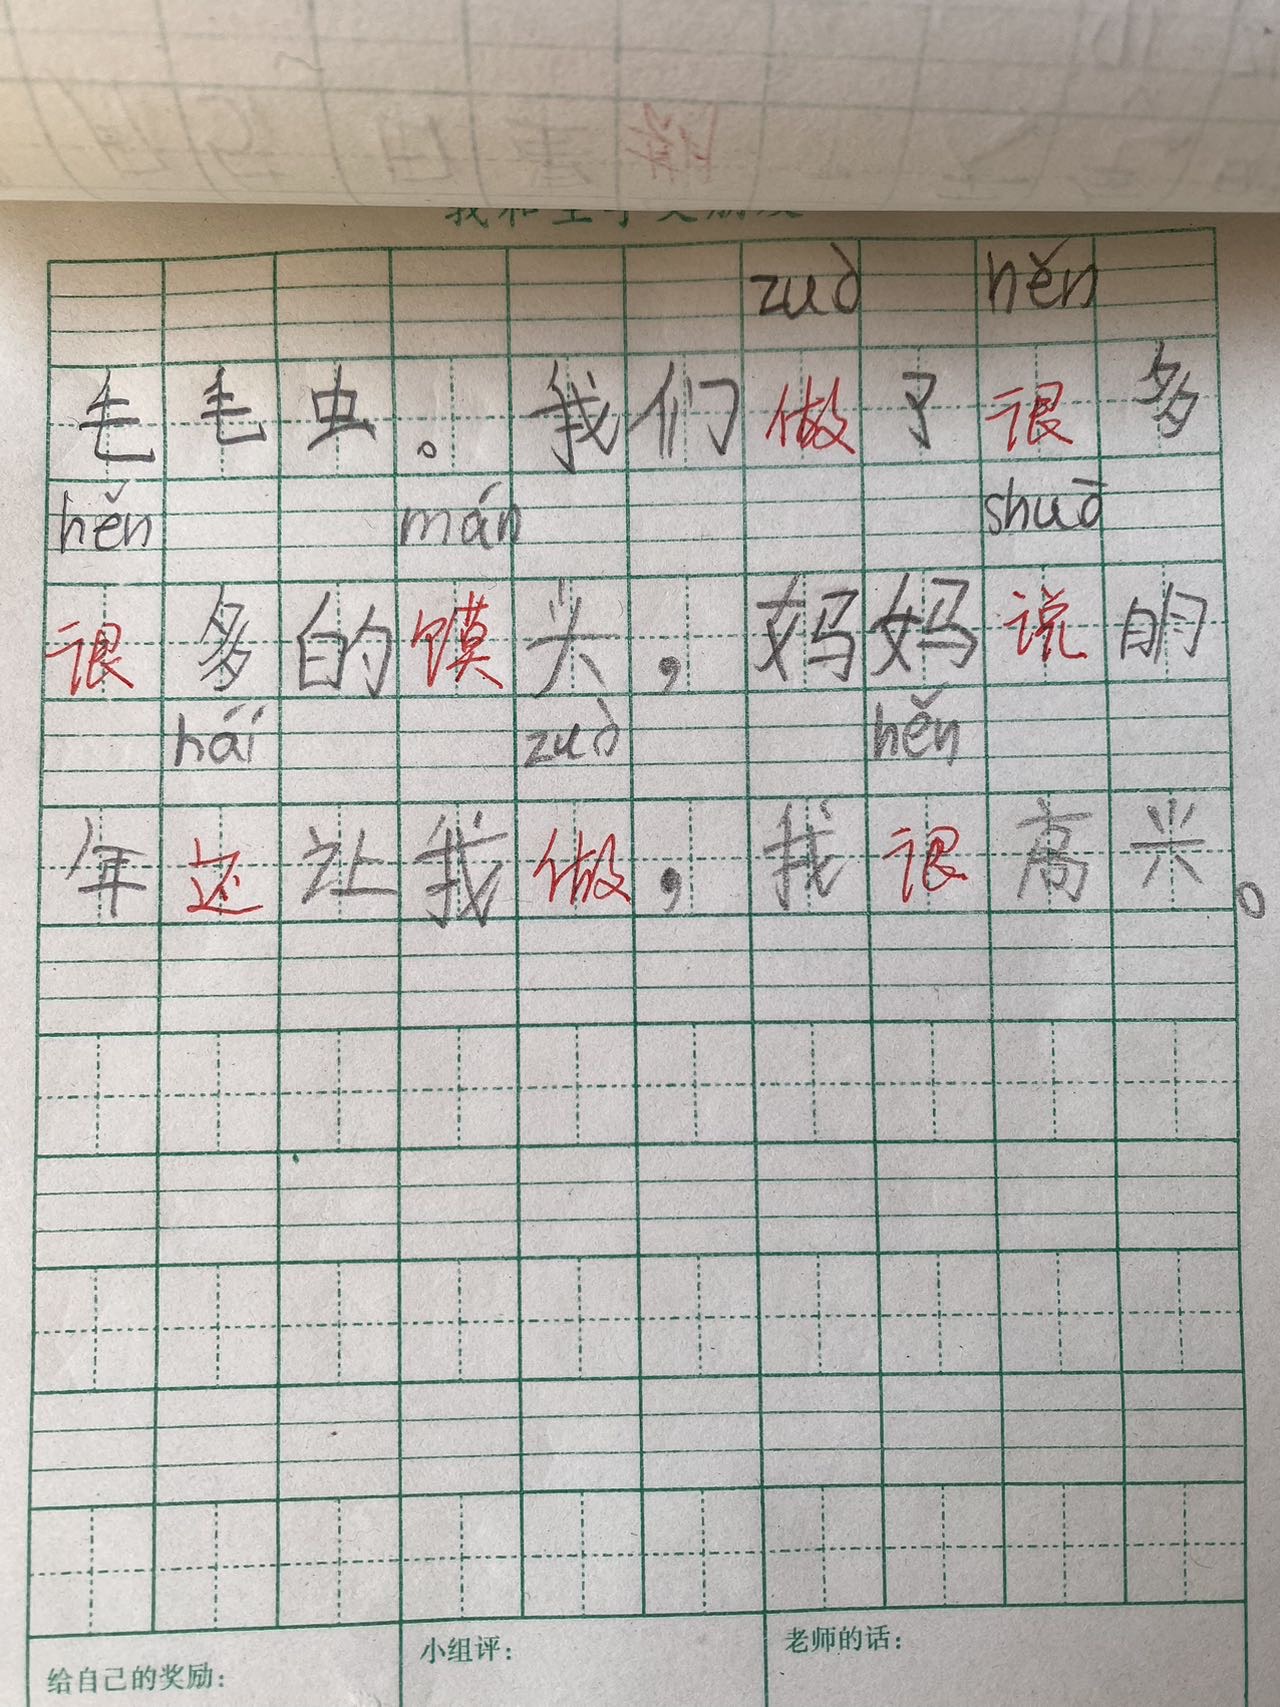 zuò hěn
毛毛虫。我们做了很多
hěn mán shuō
很多的馍头，妈妈说明
hái zuò hěn
年还让我做，我很高兴。
给自己的奖励：
小组评：
老师的话：